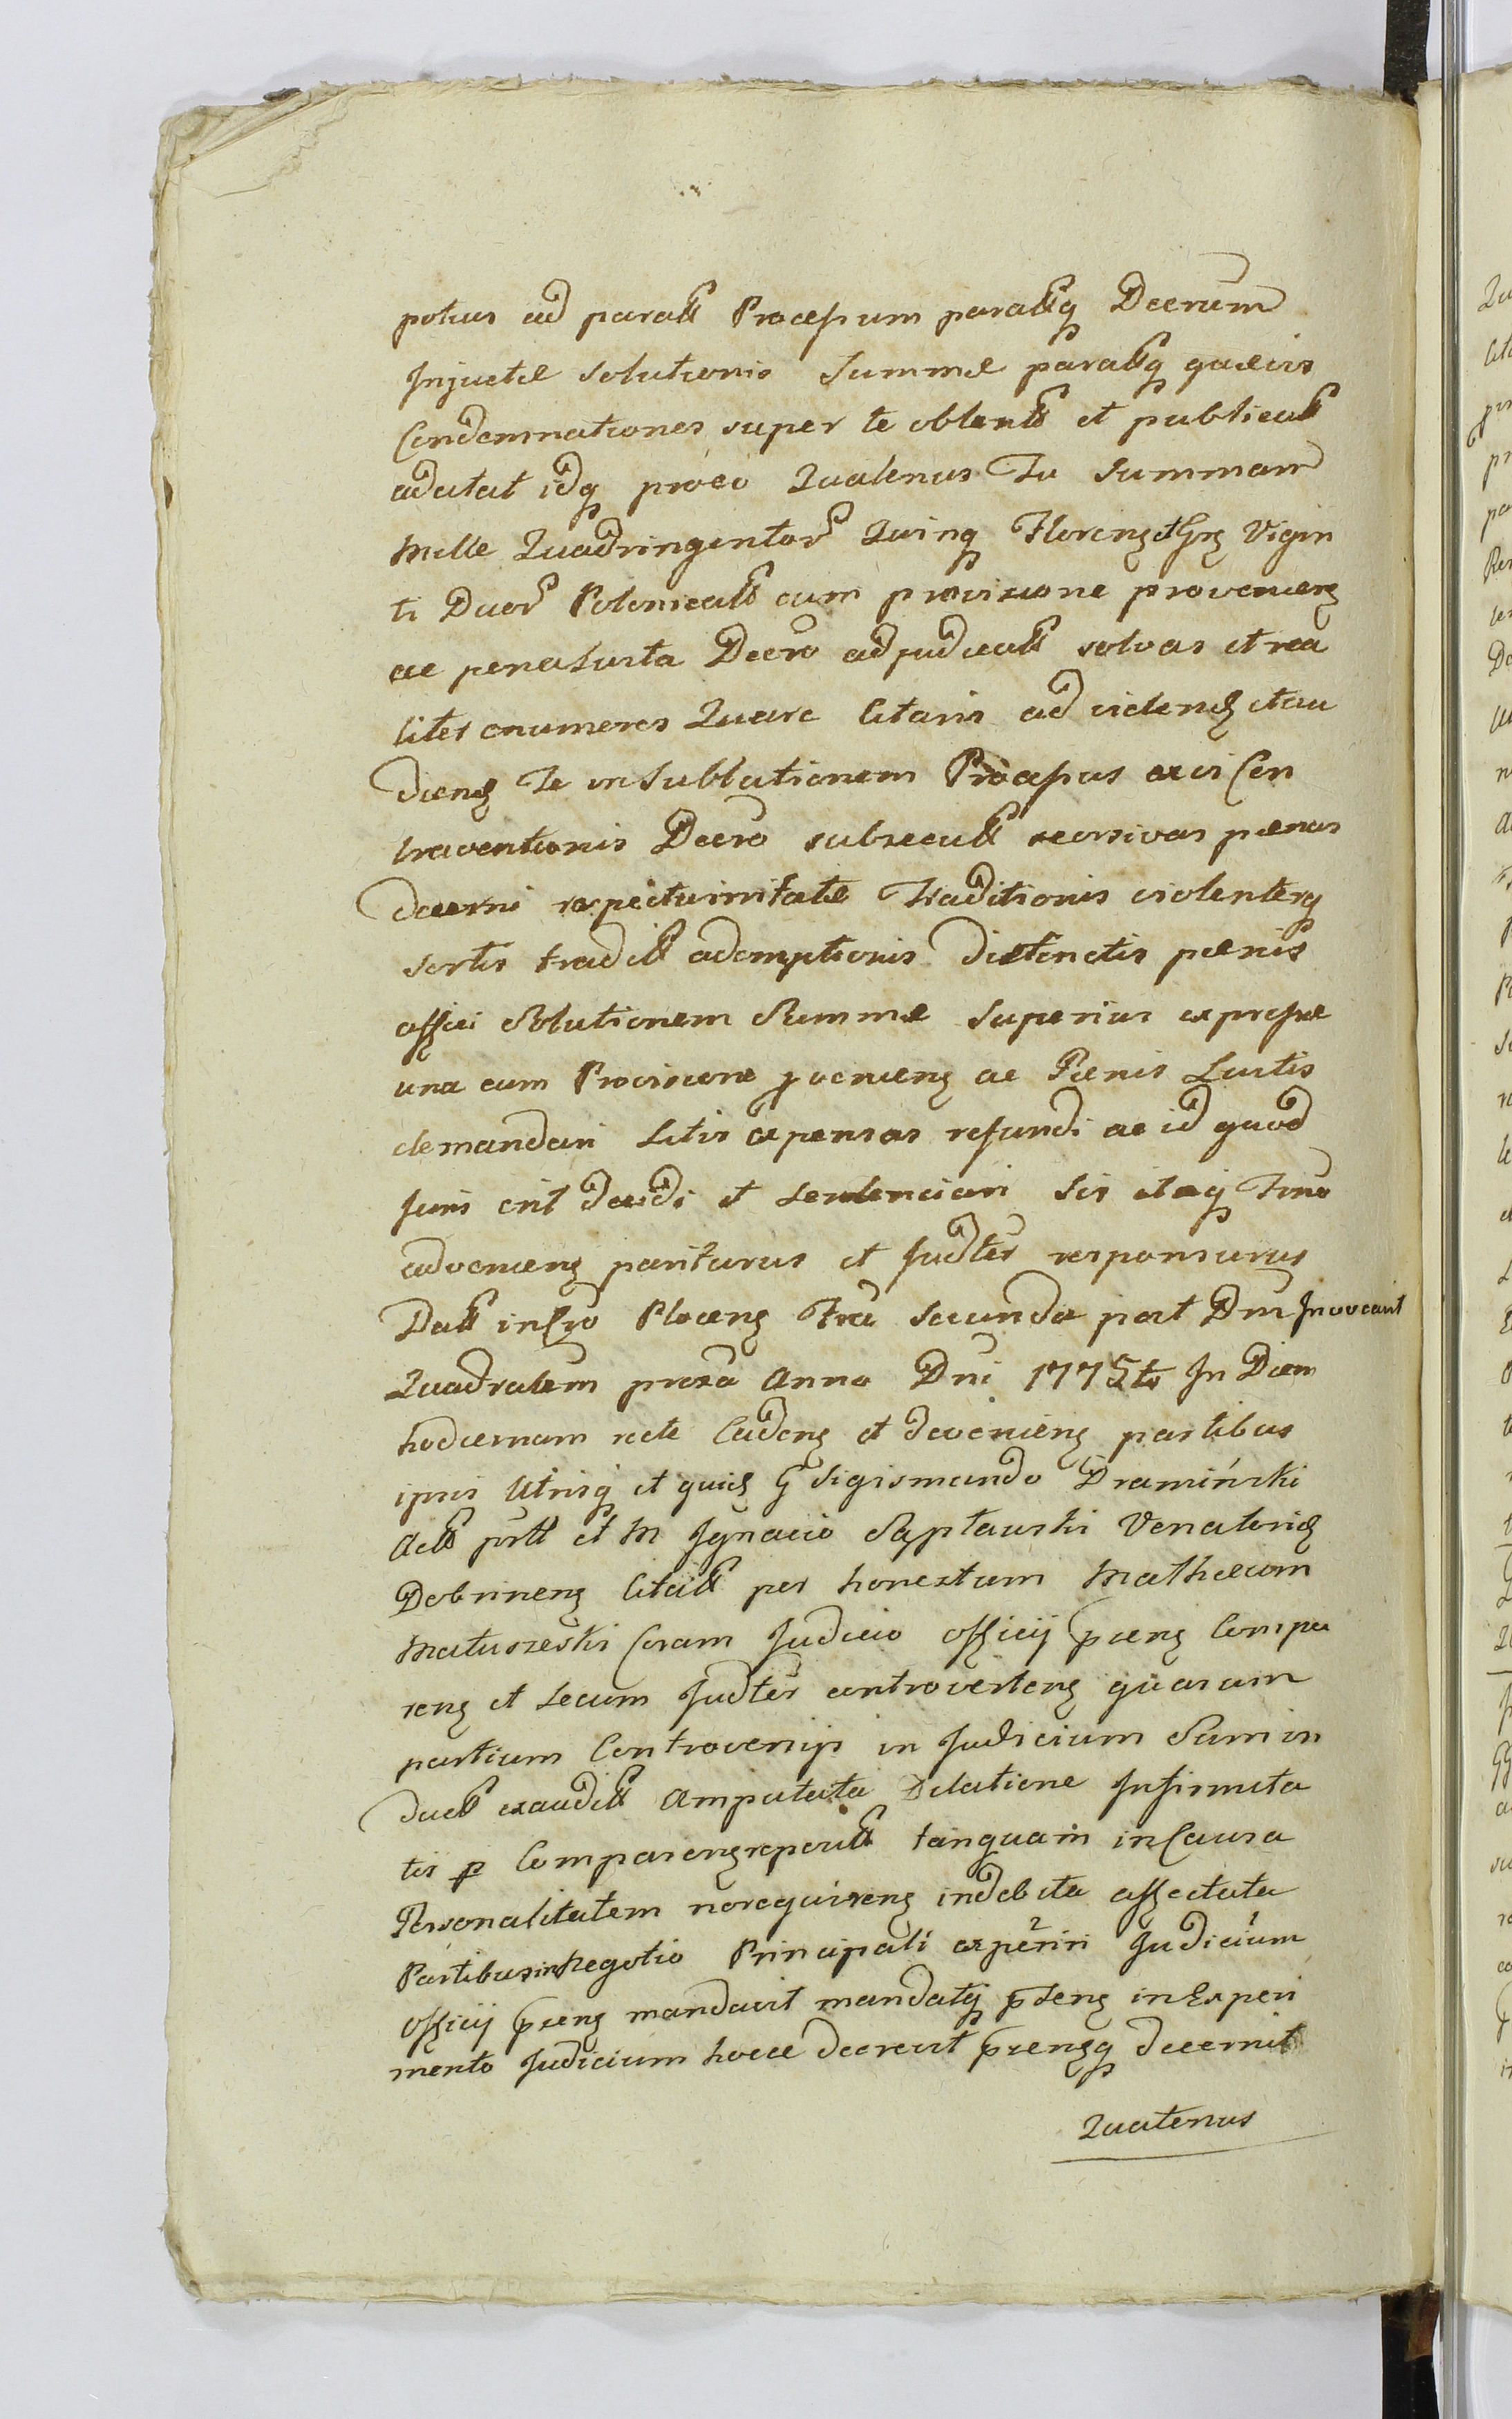 potius ad paratt Processum parattq Decrum
Injuctæ solutionis Summæ parattq quævis
Condemnationes super te obtentt et publicatt
adcitat idq proeo Quatenus Tu Summam
Mille Quadringentor Quinq Florenz et Grz Vigin
ti Duor Polonicatt cum provisione provenienz
ac pena Lucta Decro adjudicatt solvas et rea
liter enumeres Quare Citaris ad videnz etau
dienz Te in Sublutionem Processus ac vi Con
traventionis Decro subsecutt recursivas pœnas
decerni respectu irritatæ Traditionis violenterq
sortis traditt ademptionis distinctis pœnis
affici Solutionem Summæ Superius expressæ
una cum Provisione pvenienz ac Pœnis Luctis
demandari Litis expensas refundi ac id quod
Juris erit decidi et sentenciari Sis itaq Trno
advenienz pariturus et Judter responsurus
Datt in Cro Plocenz Fra Secunda post Dm Invocavit
Quadralem proxa Anno Dni 1775to In Diem
hodiernam recte Cadenz et devenienz partibus
ipsis Utrisq et quidz G Sigismundo Dramiński
Actt prtt et M Ignacio Saptauski Venatoridz
Dobrinenz Citatt per honestum Mathæum
Matuszeski Coram Judicio Officij præenz Compa
renz et secum Judter controvertenz quarum
partium Controversijs in Judicium Suum in
ductt exauditt Amputata Dilatione Infirmita
tis p Comparenz reperitt tanquam in Causa
Personalitatem norequirenz indebita affectata
Partibus in Negotio Principali experiri Judicium
Officij præenz mandavit mandatq ptenz in Experi
mento Judicium hocce decrevit præenzq decernit
Quatenus